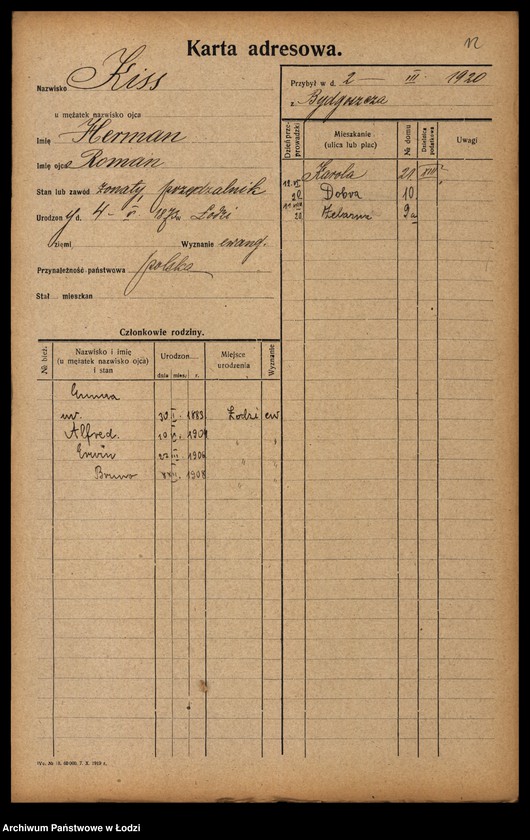 12
Karta adresowa.
Nazwisko Kiss
u mężatek nazwisko ojca
Imię Herman
Imię ojca Roman
Stan lub zawód żonaty przędzalnik
Urodzon y d. 4 - V 187 w Łodzi
ziemi Wyznanie ewang.
Przynależność państwowa polska
Stał mieszkan
Przybył w d. 2 - III. 1920
z Bydgoszcza
Dzień przeprowadzki
Mieszkanie (ulica lub plac)
№ domu
Dzielnica podatkowa
Uwagi
Karola 21 XIII
12.VI 20 Dobra 10.
Żelazna 9a
Członkowie rodziny.
№ bież.
Nazwisko i imię (u mężatek nazwisko ojca) i stan
Urodzon
dnia mies. r.
Miejsce urodzenia
Wyznanie
30 1883 Łodzi ew
Alfred. 190 " "
Erwin 22 1906 " "
Bruno 1908 " "
Wz. № 18. 60·000. 7. X. 1919 r.
Archiwum Państwowe w Łodzi